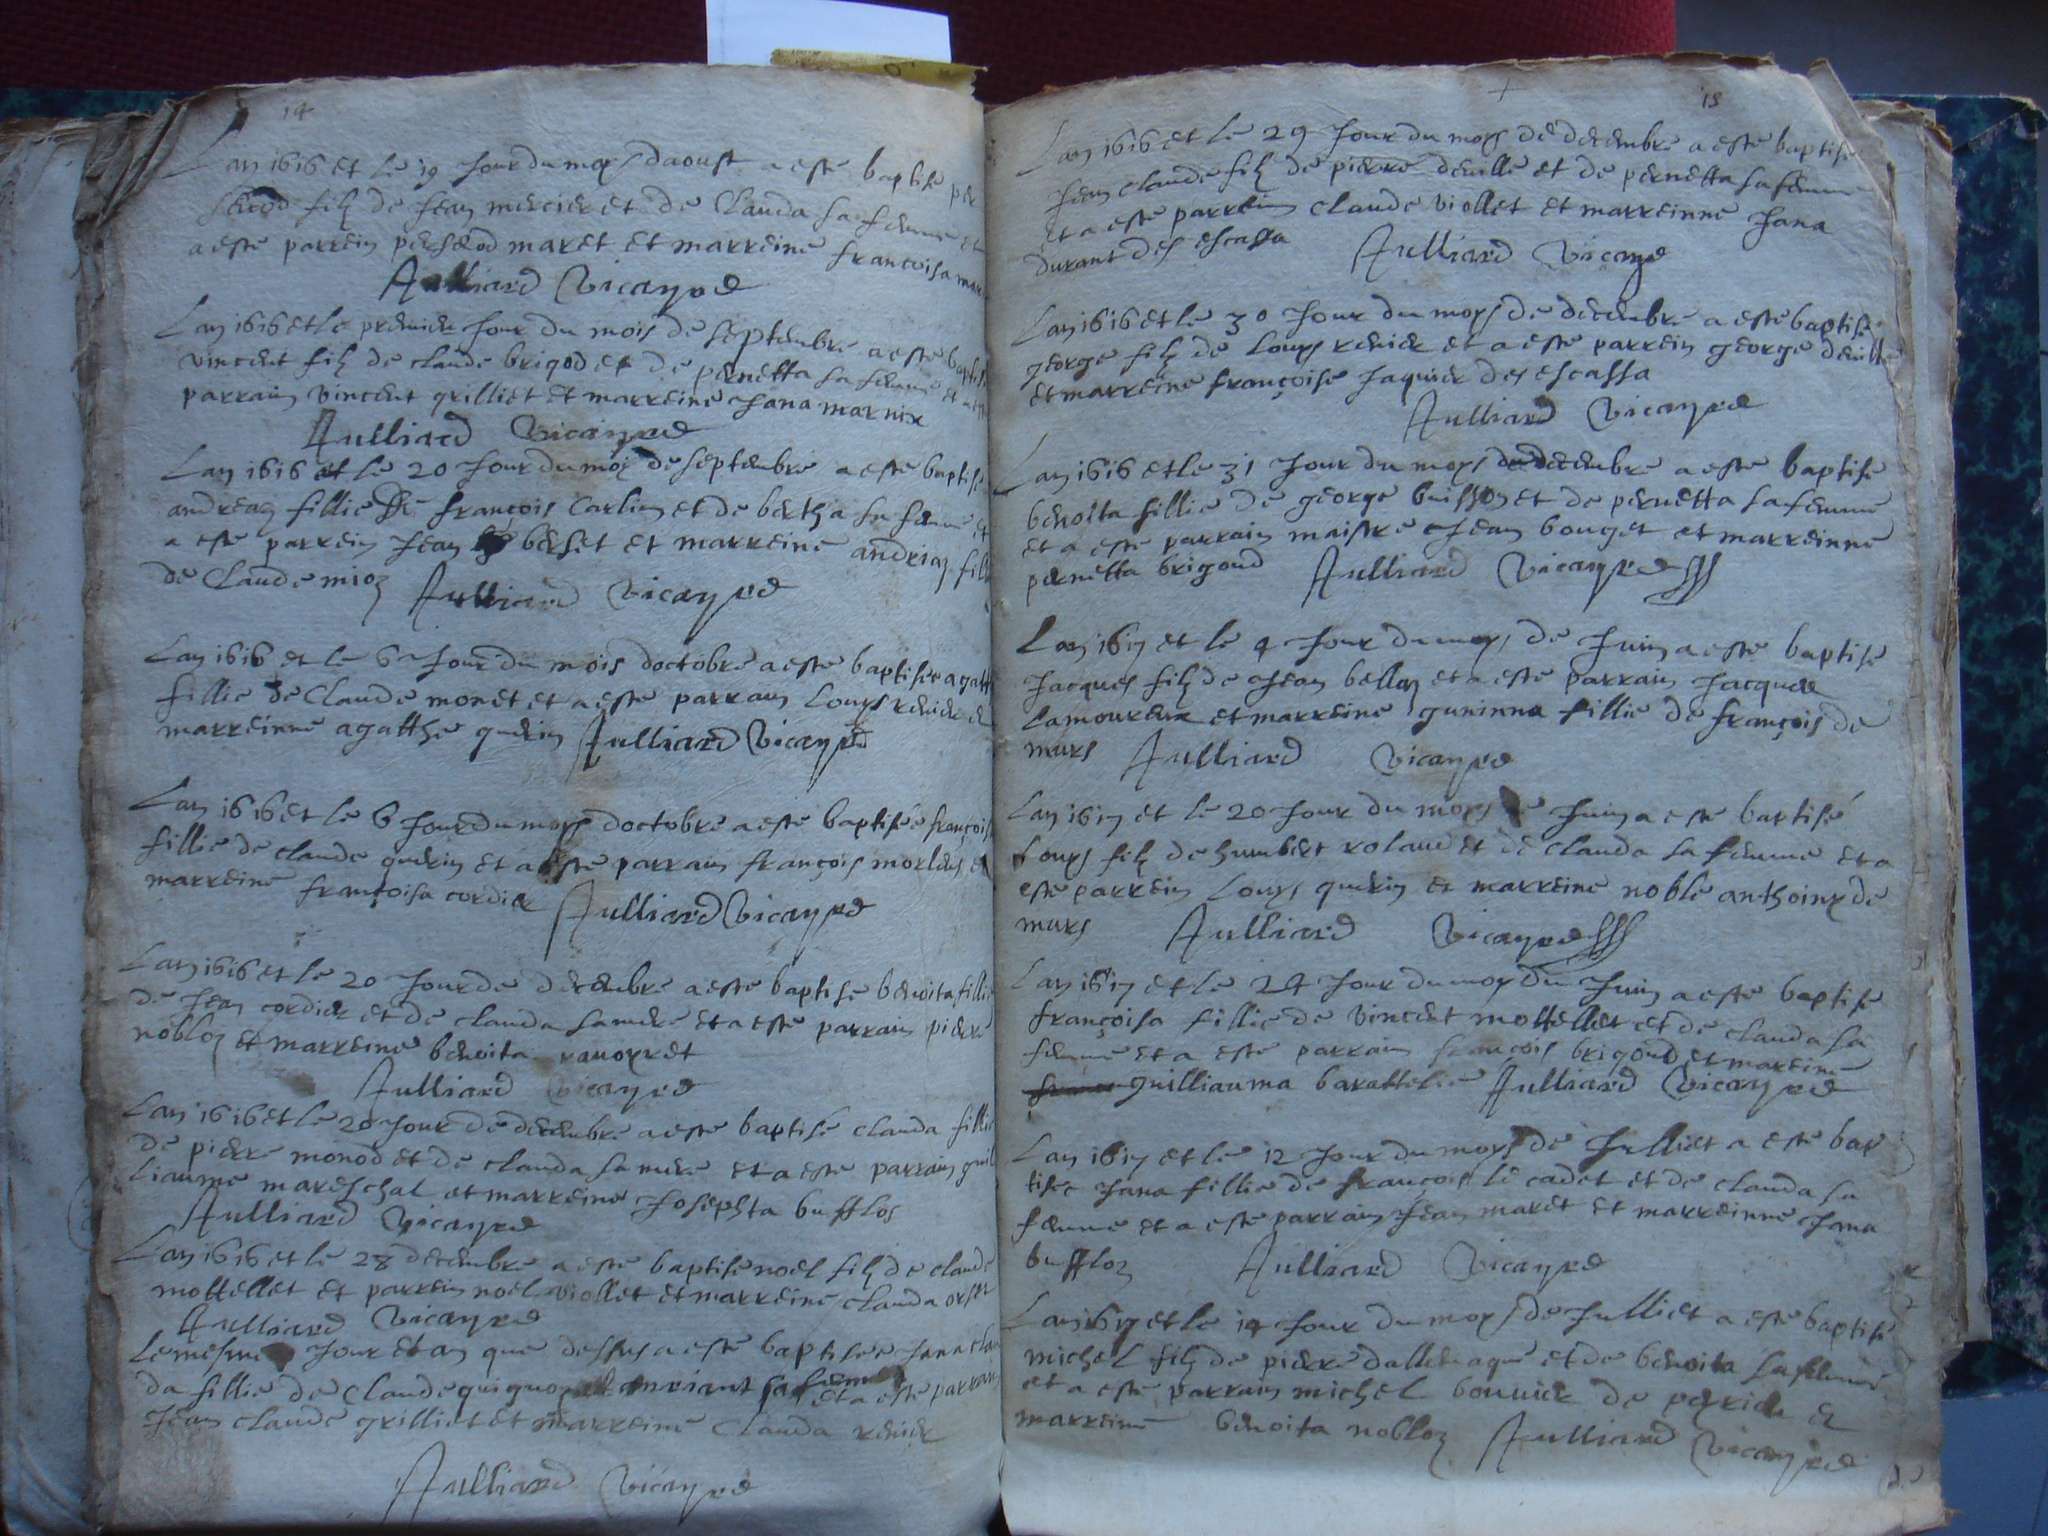 14
Lan 1616 et le 19 Jour du moys daoust a este baptise per
seuod filz de Jean mercier et de Clauda sa femme et
a este parrein perseod maret et marreine françoisa
Julliard Vicayre
Lan 1616 et le premier Jour du mois de septembre a este baptise
vincent filz de claude brigod et de pernetta sa femme et
parrain vincent grilliet et marreine Jana marnix
Julliard Vicayre
Lan 1616 et le 20 Jour du moys de septembre a este baptise
andrea fillie de françois Carlin et de bertha sa femme et
a este parrein Jean berset et marreine andriaz
de Claude mioz Julliard Vicayre
Lan 1616 et le 6 Jour du mois doctobre a este baptisee
fillie de Claude monet et a este parrain Louys renier et
marreinne agatthe querin Julliard Vicayre
Lan 1616 et le 6 Jour du moys doctobre a este baptisée
fillie de claude querin et a este parrain françois morlens et
marreine françoisa cordier Julliard Vicayre
Lan 1616 et le 20 Jour de decembre a este baptise benoita fillie
de Jean cordier et de clauda sa mere et a este parrain pierre
nobloz et marreine benoita rauoyret
Julliard Vicayre
Lan 1616 et le 20 Jour de decembre a este baptise clauda fillie
de pierre monod et de clauda sa mere et a este parrain guil
liaume mareschal et marreine Josephta bufflos
Julliard Vicayre
Lan 1616 et le 28 decembre a este baptise noel filz de claude
mottellet et parrein noel viollet et marreine clauda
Julliard Vicayre
Le mesme Jour et an que dessus a este baptisee Jana clau
da fillie de Claude sa femme et a este parrain
Jean claude grilliet et marreine Clauda renier
Julliard Vicayre
15
Lan 1616 et le 29 Jour du moys de decembre a este baptise
Jean claude filz de pierre deuille et de pernetta sa femme
et a este parrein claude viollet et marreinne Jana
durant des escassa Julliard Vicaye
Lan 1616 et le 30 Jour du moys de decembre a este baptisé
george filz de Louys renier et a este parrein george deuille
et marreine françoise Jaquier des escassa
Julliard Vicayre
Lan 1616 et le 31 Jour du moys de decembre a este baptise
benoita fillie de george buisson et de pernetta sa femme
et a este parrain maistre Jean bouget et marreinne
pernetta brigoud Julliard Vicayre
Lan 1617 et le 4 Jour du moys de Juin a este baptise
Jacques filz de Jean belloz et a este parrain Jacques
Lamoureux et marreine guninna fillie de françois de
murs Julliard Vicayre
Lan 1617 et le 20 Jour du moys de Juin a este baptisé
Louys filz de humbert rolaud et de clauda sa femme et a
este parrein Louys querin et marreine noble anthoina de
murs Julliard Vicayre
Lan 1617 et le 24 Jour du moy du Juin a este baptise
françoisa fillie de vincent mottellet et de clauda sa
femme et a este parrain françois brigoud et mareine
guilliauma barattelie Julliard Vicayre
Lan 1617 et le 12 Jour du moys de Julliet a este bap
tisee Jana fillie de françois le cadet et de clauda sa
femme et a este parrain Jean maret et marreinne Jana
buffloz Julliard Vicayre
Lan 1617 et le 14 Jour du moys de Julliet a este baptisé
michel filz de pierre dallemaque et de benoita sa femme
et a este parrain michel bouuier de peyrieu et
marreine benoita nobloz Julliard Vicayre